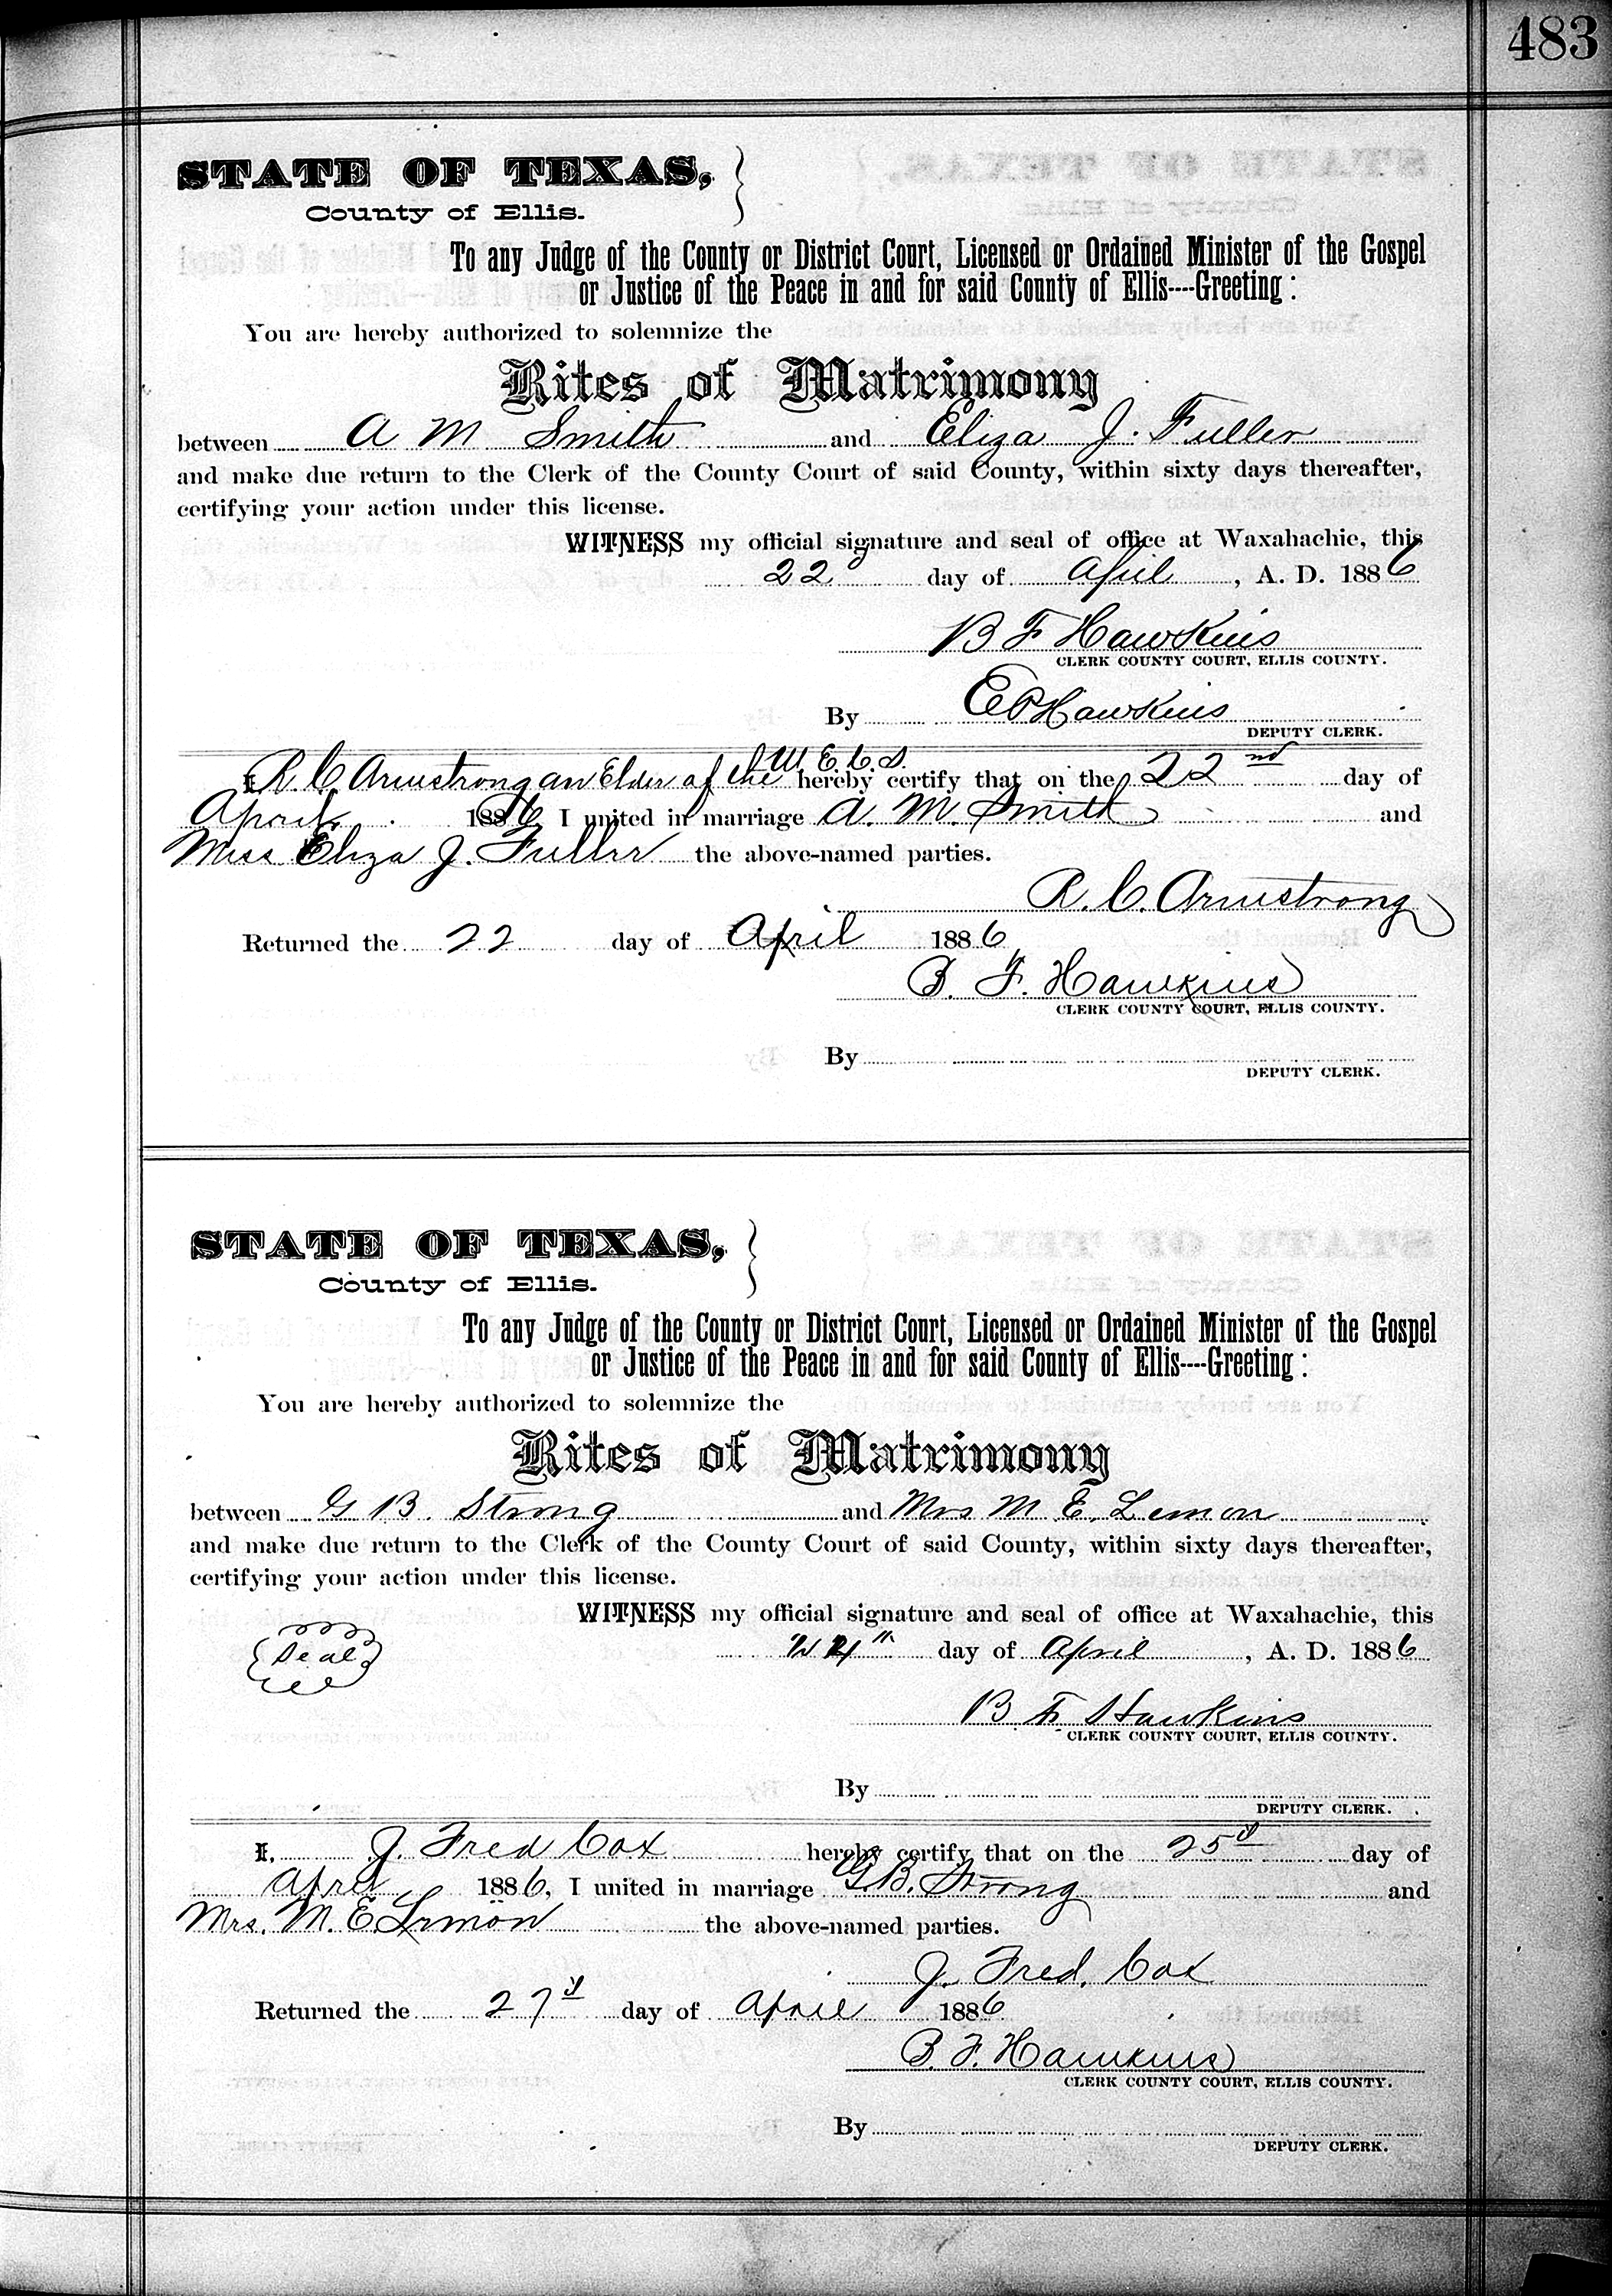 483
STATE OF TEXAS,
County of Ellis.
To any Judge of the County or District Court, Licensed or Ordained Minister of the Gospel
or Justice of the Peace in and for said County of Ellis----Greeting :
You are hereby authorized to solemnize the
Rites of Matrimony
between A M Smith and Eliza J. Fuller
and make due return to the Clerk of the County Court of said County, within sixty days thereafter,
certifying your action under this license.
WITNESS my official signature and seal of office at Waxahachie, this
22 day of April , A. D. 1886
B F Hawkins
CLERK COUNTY COURT, ELLIS COUNTY.
By E P Hawkins
DEPUTY CLERK.
I R. C. Armstrong an Elder of the M. E. C. S. hereby certify that on the 22nd day of
April 1886, I united in marriage A. M. Smith and
Miss Eliza J. Fuller the above-named parties.
R. C. Armstrong
Returned the 22 day of April 1886
B. F. Hawkins
CLERK COUNTY COURT, ELLIS COUNTY.
By
DEPUTY CLERK.
STATE OF TEXAS,
County of Ellis.
To any Judge of the County or District Court, Licensed or Ordained Minister of the Gospel
or Justice of the Peace in and for said County of Ellis----Greeting :
You are hereby authorized to solemnize the
Rites of Matrimony
between G B. Strong and Mrs M E. Lemon
and make due return to the Clerk of the County Court of said County, within sixty days thereafter,
certifying your action under this license.
WITNESS my official signature and seal of office at Waxahachie, this
Seal 24th day of April , A. D. 1886
B F Hawkins
CLERK COUNTY COURT, ELLIS COUNTY.
By
DEPUTY CLERK.
I, J. Fred Cox hereby certify that on the 25d day of
April 1886, I united in marriage G. B. Strong and
Mrs. M. E. Lemon the above-named parties.
J. Fred. Cox
Returned the 27d day of April 1886
B. F. Hawkins
CLERK COUNTY COURT, ELLIS COUNTY.
By
DEPUTY CLERK.